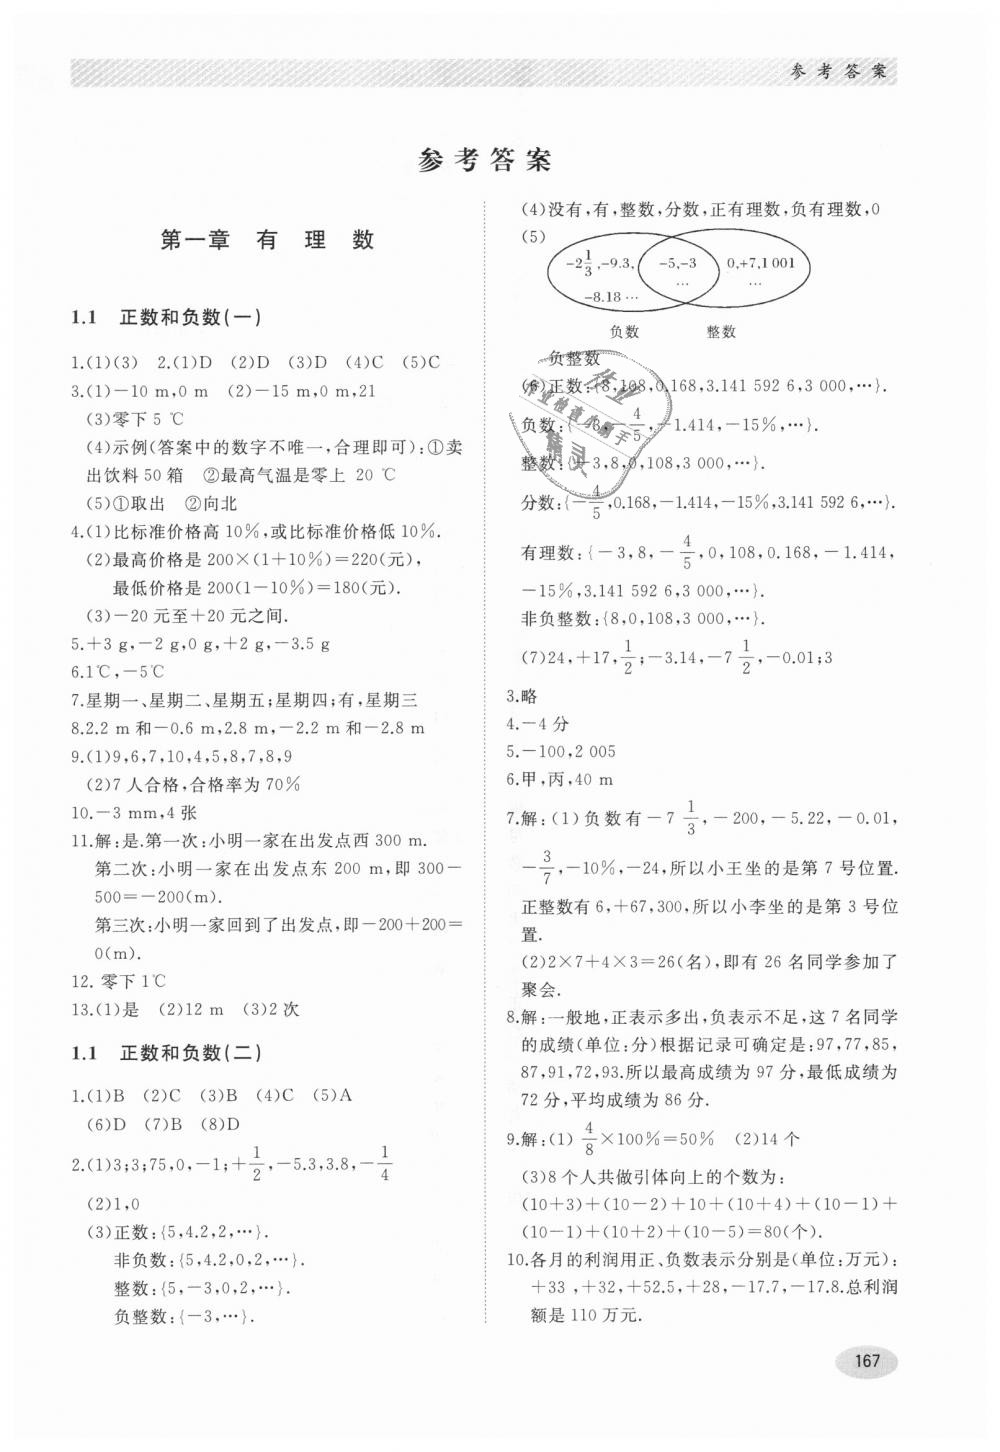 参考答案
参考答案
第一章 有理数
1.1 正数和负数(一)
1.(1)(3) 2.(1)D (2)D (3)D (4)C (5)C
3.(1)－10 m,0 m (2)－15 m,0 m,21
(3)零下5 ℃
(4)示例(答案中的数字不唯一,合理即可):①卖
出饮料50箱 ②最高气温是零上 20 ℃
(5)①取出 ②向北
4.(1)比标准价格高10%,或比标准价格低10%.
(2)最高价格是200×(1+10%)=220(元),
最低价格是200(1－10%)=180(元).
(3)－20元至+20元之间.
5.+3 g,－2 g,0 g,+2 g,－3.5 g
6.1℃,－5℃
7.星期一、星期二、星期五;星期四;有,星期三
8.2.2 m和－0.6 m,2.8 m,－2.2 m和－2.8 m
9.(1)9,6,7,10,4,5,8,7,8,9
(2)7人合格,合格率为70%
10.－3 mm,4张
11.解:是.第一次:小明一家在出发点西300 m.
第二次:小明一家在出发点东 200 m,即300－
500=－200(m).
第三次:小明一家回到了出发点,即－200+200=
0(m).
12. 零下1℃
13.(1)是 (2)12 m (3)2次
1.1 正数和负数(二)
1.(1)B (2)C (3)B (4)C (5)A
(6)D (7)B (8)D
2.(1)3;3;75,0,－1;+1/2,－5.3,3.8,－1/4
(2)1,0
(3)正数:{5,4.2,2,…}.
非负数:{5,4.2,0,2,…}.
整数:{5,－3,0,2,…}.
负整数:{－3,…}.
(4)没有,有,整数,分数,正有理数,负有理数,0
(5)
－2 1/3,－9.3, －5,－3 0,+7,1 001
－8.18 … … …
负数 整数
负整数
(6)正数:{8,108,0.168,3.141 592 6,3 000,…}.
负数:{－3,－4/5,－1.414,－15%,…}.
整数:{－3,8,0,108,3 000,…}.
分数:{－4/5,0.168,－1.414,－15%,3.141 592 6,…}.
有理数:{－3,8,－4/5,0,108,0.168,－1.414,
－15%,3.141 592 6,3 000,…}.
非负整数:{8,0,108,3 000,…}.
(7)24,+17,1/2;－3.14,－7 1/2,－0.01;3
3.略
4.－4分
5.－100,2 005
6.甲,丙,40 m
7.解:(1)负数有－7 1/3,－200,－5.22,－0.01,
－3/7,－10%,－24,所以小王坐的是第7号位置.
正整数有6,+67,300,所以小李坐的是第3号位
置.
(2)2×7+4×3=26(名),即有26名同学参加了
聚会.
8.解:一般地,正表示多出,负表示不足,这7名同学
的成绩(单位:分)根据记录可确定是:97,77,85,
87,91,72,93.所以最高成绩为97分,最低成绩为
72分,平均成绩为86分.
9.解:(1) 4/8×100%=50% (2)14个
(3)8个人共做引体向上的个数为:
(10+3)+(10－2)+10+(10+4)+(10－1)+
(10－1)+(10+2)+(10－5)=80(个).
10.各月的利润用正、负数表示分别是(单位:万元):
+33 ,+32,+52.5,+28,－17.7,－17.8.总利润
额是110万元.
作业
作业检查小帮手
精灵
167